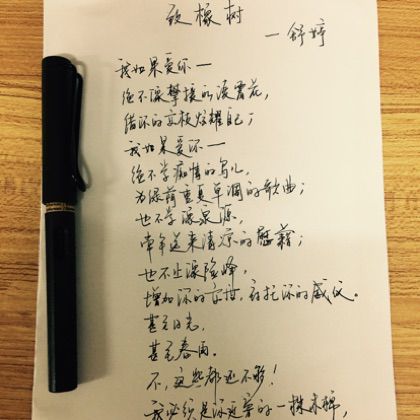 致橡树
—舒婷
我如果爱你—
绝不像攀援的凌霄花,
借你的高枝炫耀自己;
我如果爱你—
绝不学痴情的鸟儿,
为绿荫重复单调的歌曲;
也不学像泉源,
常年送来清凉的慰藉;
也不止像险峰,
增加你的高度,衬托你的威仪。
甚至日光,
甚至春雨。
不,这些都还不够!
我必须是你近旁的一株木棉,